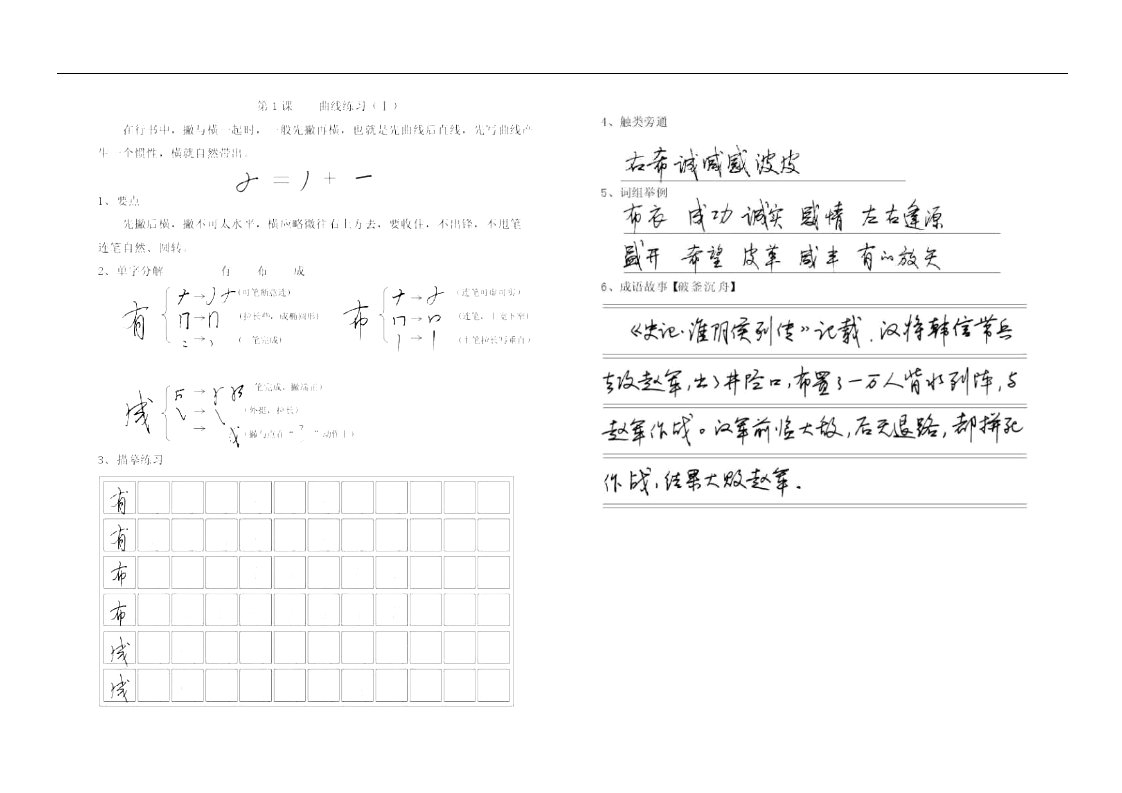 第1课 曲线练习（十）
在行书中，撇与横一起时，一般先撇再横，也就是先曲线后直线，先写曲线产
生一个惯性，横就自然带出。
= 丿 + 一
1、要点
先撇后横，撇不可太水平，横应略微往右上方去，要收住，不出锋，不甩笔
连笔自然、圆转。
2、单字分解 有 布 成
有 （可笔断意连） 布 （连笔可虚可实）
（拉长些，成椭圆形） （连笔，上宽下窄）
（一笔完成） （主笔拉长写垂直）
成 一笔完成，撇端正）
（外挺，拉长）
3、描摹练习
有
有
布
布
成
成
4、触类旁通
右希诚咸感波皮
5、词组举例
布衣 成功 诚实 感情 左右逢源
盛开 希望 皮革 咸丰 有的放矢
6、成语故事【破釜沉舟】
《史记·淮阴侯列传》记载，汉将韩信带兵
去攻赵军，出了井陉口，布置了一万人背水列阵，与
赵军作战。汉军前临大敌，后无退路，都拼死
作战，结果大败赵军。